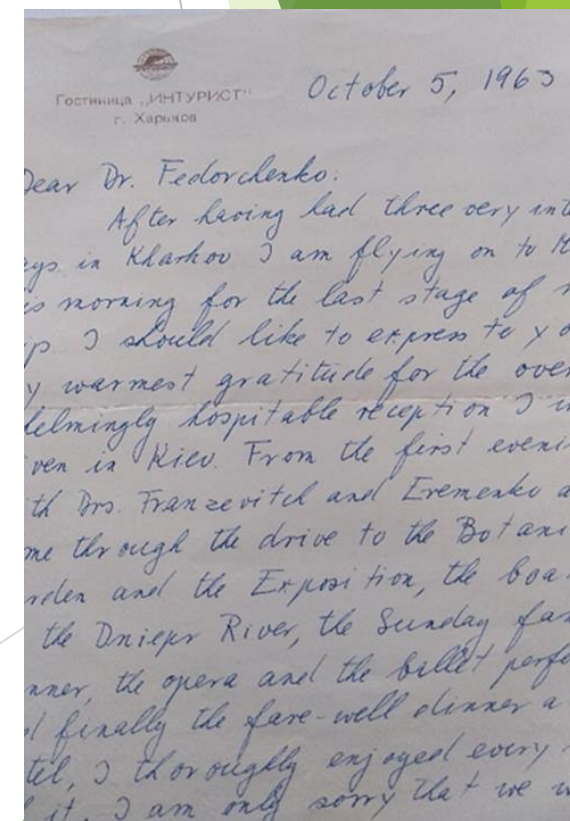 Гостиница „ИНТУРИСТ"
г. Харьков
October 5, 1963
Dear Dr. Fedorchenko:
After having had three very int
ays in Kharkov I am flying on to M
is morning for the last stage of
ip I should like to express to yo
y warmest gratitude for the over
helmingly hospitable reception I w
ven in Kiev. From the first eveni
th Drs. Franzevitch and Eremenko a
me through the drive to the Botani
rden and the Exposition, the boa
the Dniepr River, the Sunday fa
nner, the opera and the ballet perfo
d finally the fare-well dinner a
tel, I thoroughly enjoyed every
it. I am only sorry that we w